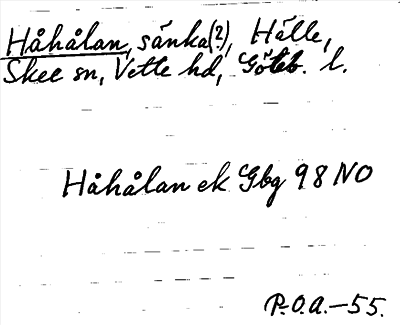 Håhålan, sänka(?), Hälle,
Skee sn, Vette hd, Göteb. l.
Håhålan ek Gbg 98 NO
P.O.A.-55.